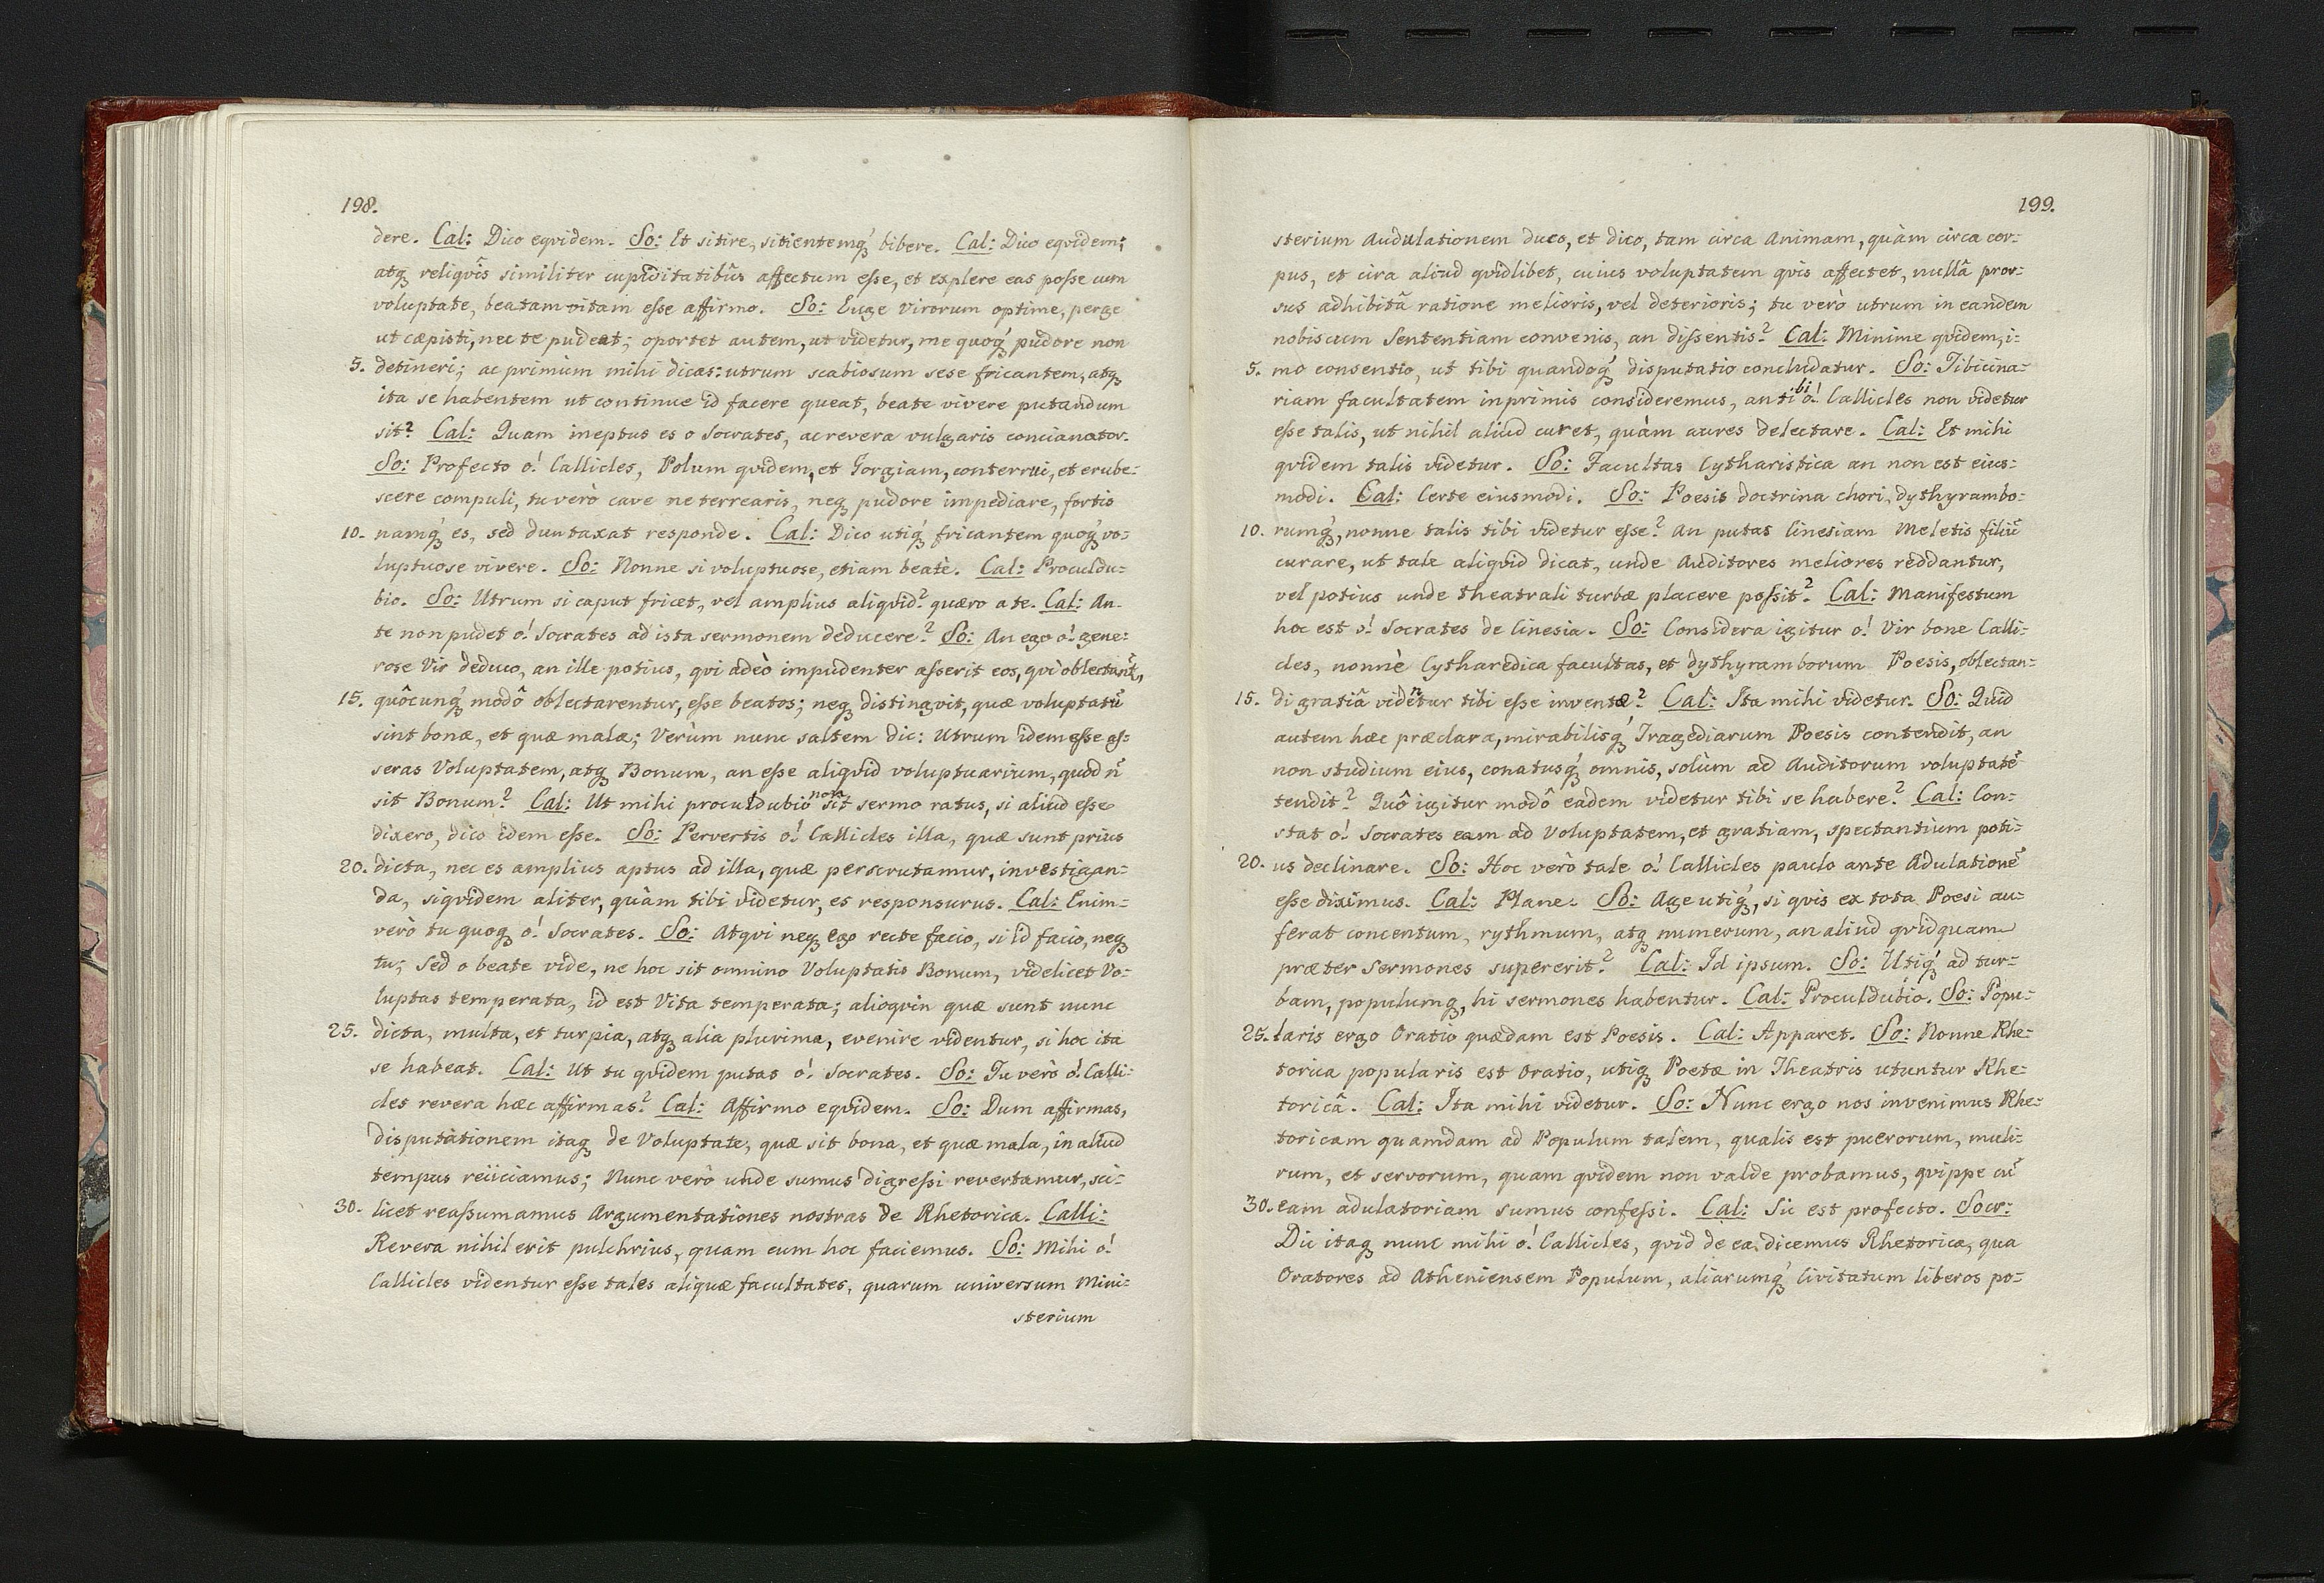 198.
dere. Cal: Dico eqvidem. So: Et sitire, sitientemq́ bibere. Cal: Dico eqvidem;
atq reliqvîs similiter cupiditatibûs affectum esse, et explere eas posse cum
voluptate, beatam vitam esse affirmo. So: Euge Virorum optime, perge
ut cæpisti, nec te pudeat; oportet autem, ut videtur, me quoq́ pudore non
5. detineri; ac primùm mihi dicas: utrum scabiosum sese fricantem, atq
ita se habentem ut continue id facere queat, beate vivere putandum
sit? Cal: Quam ineptus es o Socrates, ac revera vulgaris concianator.
So: Profecto o! Callicles, Polum qvidem, et Gorgiam, conterrui, et erube:
scere compuli, tu verò cave ne terrearis, neq pudore impediare, fortis
10. namq́ es, sed duntaxat responde. Cal: Dico utiq́ fricantem quoq́ vo:
luptuose vivere. So: Nonne si voluptuose, etiam beatè. Cal: Proculdu:
bio. So: Utrum si caput fricet, vel amplius aliqvid? quæro a te. Cal: An:
te non pudet o! Socrates ad ista sermonem deducere? So: An ego o! gene:
rose Vir deduco, an ille potius, qvi adeò impudenter asserit eos, qvi oblectant̃,
15. quôcunq́ modô oblectarentur, esse beatos; neq distingvit, quæ voluptatũ
sint bonæ, et quæ malæ; Verùm nunc saltem dic: Utrum idem esse as:
seras Voluptatem, atq Bonum, an esse aliqvid voluptuarium, quod ñ
sit Bonum? Cal: Ut mihi proculdubio non sit sermo ratus, si aliud esse
dixero, dico idem esse. So: Pervertis o! Callicles illa, quæ sunt prius
20. dicta, nec es amplius aptus ad illa, quæ perscrutamur, investigan:
da, siqvidem aliter, quàm tibi videtur, es responsurus. Cal: Enim:
verò tu quoq o! Socrates. So: Atqvi neq ego recte facio, si id facio, neq
tu; Sed o beate vide, ne hoc sit omnino Voluptatis Bonum, videlicet Vo:
luptas temperata, id est Vita temperata; alioqvin quæ sunt nunc
25. dicta, multa, et turpia, atq alia plurima, evenire videntur, si hoc ita
se habeat. Cal: Ut tu qvidem putas o! Socrates. So: Tu verò o! Calli:
cles revera hæc affirmas? Cal: Affirmo eqvidem. So: Dum affirmas,
disputationem itaq de Voluptate, quæ sit bona, et quæ mala, in aliud
tempus reiiciamus; Nunc verò unde sumus digressi revertamur, sci:
30. licet reassumamus Argumentationes nostras de Rhetorica. Calli:
Revera nihil erit pulchrius, quam cum hoc faciemus. So: Mihi o!
Callicles videntur esse tales aliquæ facultates, quarum universum Mini:
sterium
199.
sterium Audulationem duco, et dico, tam circa Animam, quàm circa cor:
pus, et cira aliud qvidlibet, cuius voluptatem qvis affectet, nullâ pror:
sus adhibitâ ratione melioris, vel deterioris; tu verò utrum in eandem
nobiscum Sententiam convenis, an dissentis? Cal: Minime qvidem, i:
5. mo consentio, ut tibi quandoq́ disputatio concludatur. So: Tibicina:
riam facultatem inprimis consideremus, an tibi o! Callicles non videtur
esse talis, ut nihil aliud curet, quàm aures delectare. Cal: Et mihi
qvidem talis videtur. So: Facultas Cytharistica an non est eius:
modi. Cal: Certe eiusmodi. So: Poesis doctrina chori, dythyrambo:
10. rumq́, nonne talis tibi videtur esse? An putas Cinesiam Meletis filiũ
curare, ut tale aliqvid dicat, unde Auditores meliores reddantur,
vel potius unde theatrali turbæ placere possit? Cal: Manifestum
hoc est o! Socrates de Cinesia. So: Considera igitur o! Vir bone Calli:
cles, nonnè Cytharedica facultas, et dythyramborum Poesis, oblectan:
15. di gratiâ videntur tibi esse inventæ? Cal: Ita mihi videtur. So: Quid
autem hæc præclara, mirabilisq́ Tragediarum Poesis contendit, an
non studium eius, conatusq́ omnis, solùm ad Auditorum voluptatẽ
tendit? Quô igitur modô eadem videtur tibi se habere? Cal: Con:
stat o! Socrates eam ad Voluptatem, et gratiam, spectantium poti:
20. us declinare. So: Hoc verò tale o! Callicles paulo ante Adulationẽ
esse diximus. Cal: Plane. So: Age utiq́, si qvis ex tota Poesi au:
ferat concentum, rythmum, atq numerum, an aliud qvidquam
præter Sermones supererit? Cal: Id ipsum. So: Utiq́ ad tur:
bam, populumq, hi sermones habentur. Cal: Proculdubio. So: Popu:
25. laris ergo Oratio quædam est Poesis. Cal: Apparet. So: Nonne Rhe:
torica popularis est Oratio, utiq Poetæ in Theatris utuntur Rhe:
toricâ. Cal: Ita mihi videtur. So: Nunc ergo nos invenimus Rhe:
toricam quamdam ad Populum talem, qualis est puerorum, muli:
rum, et servorum, quam qvidem non valde probamus, qvippe cũ
30. eam adulatoriam sumus confessi. Cal: Sic est profecto. Socr:
Dic itaq nunc mihi o! Callicles, qvid de ea dicemus Rhetorica, qua
Oratores ad Atheniensem Populum, aliarumq́ Civitatum liberos po: